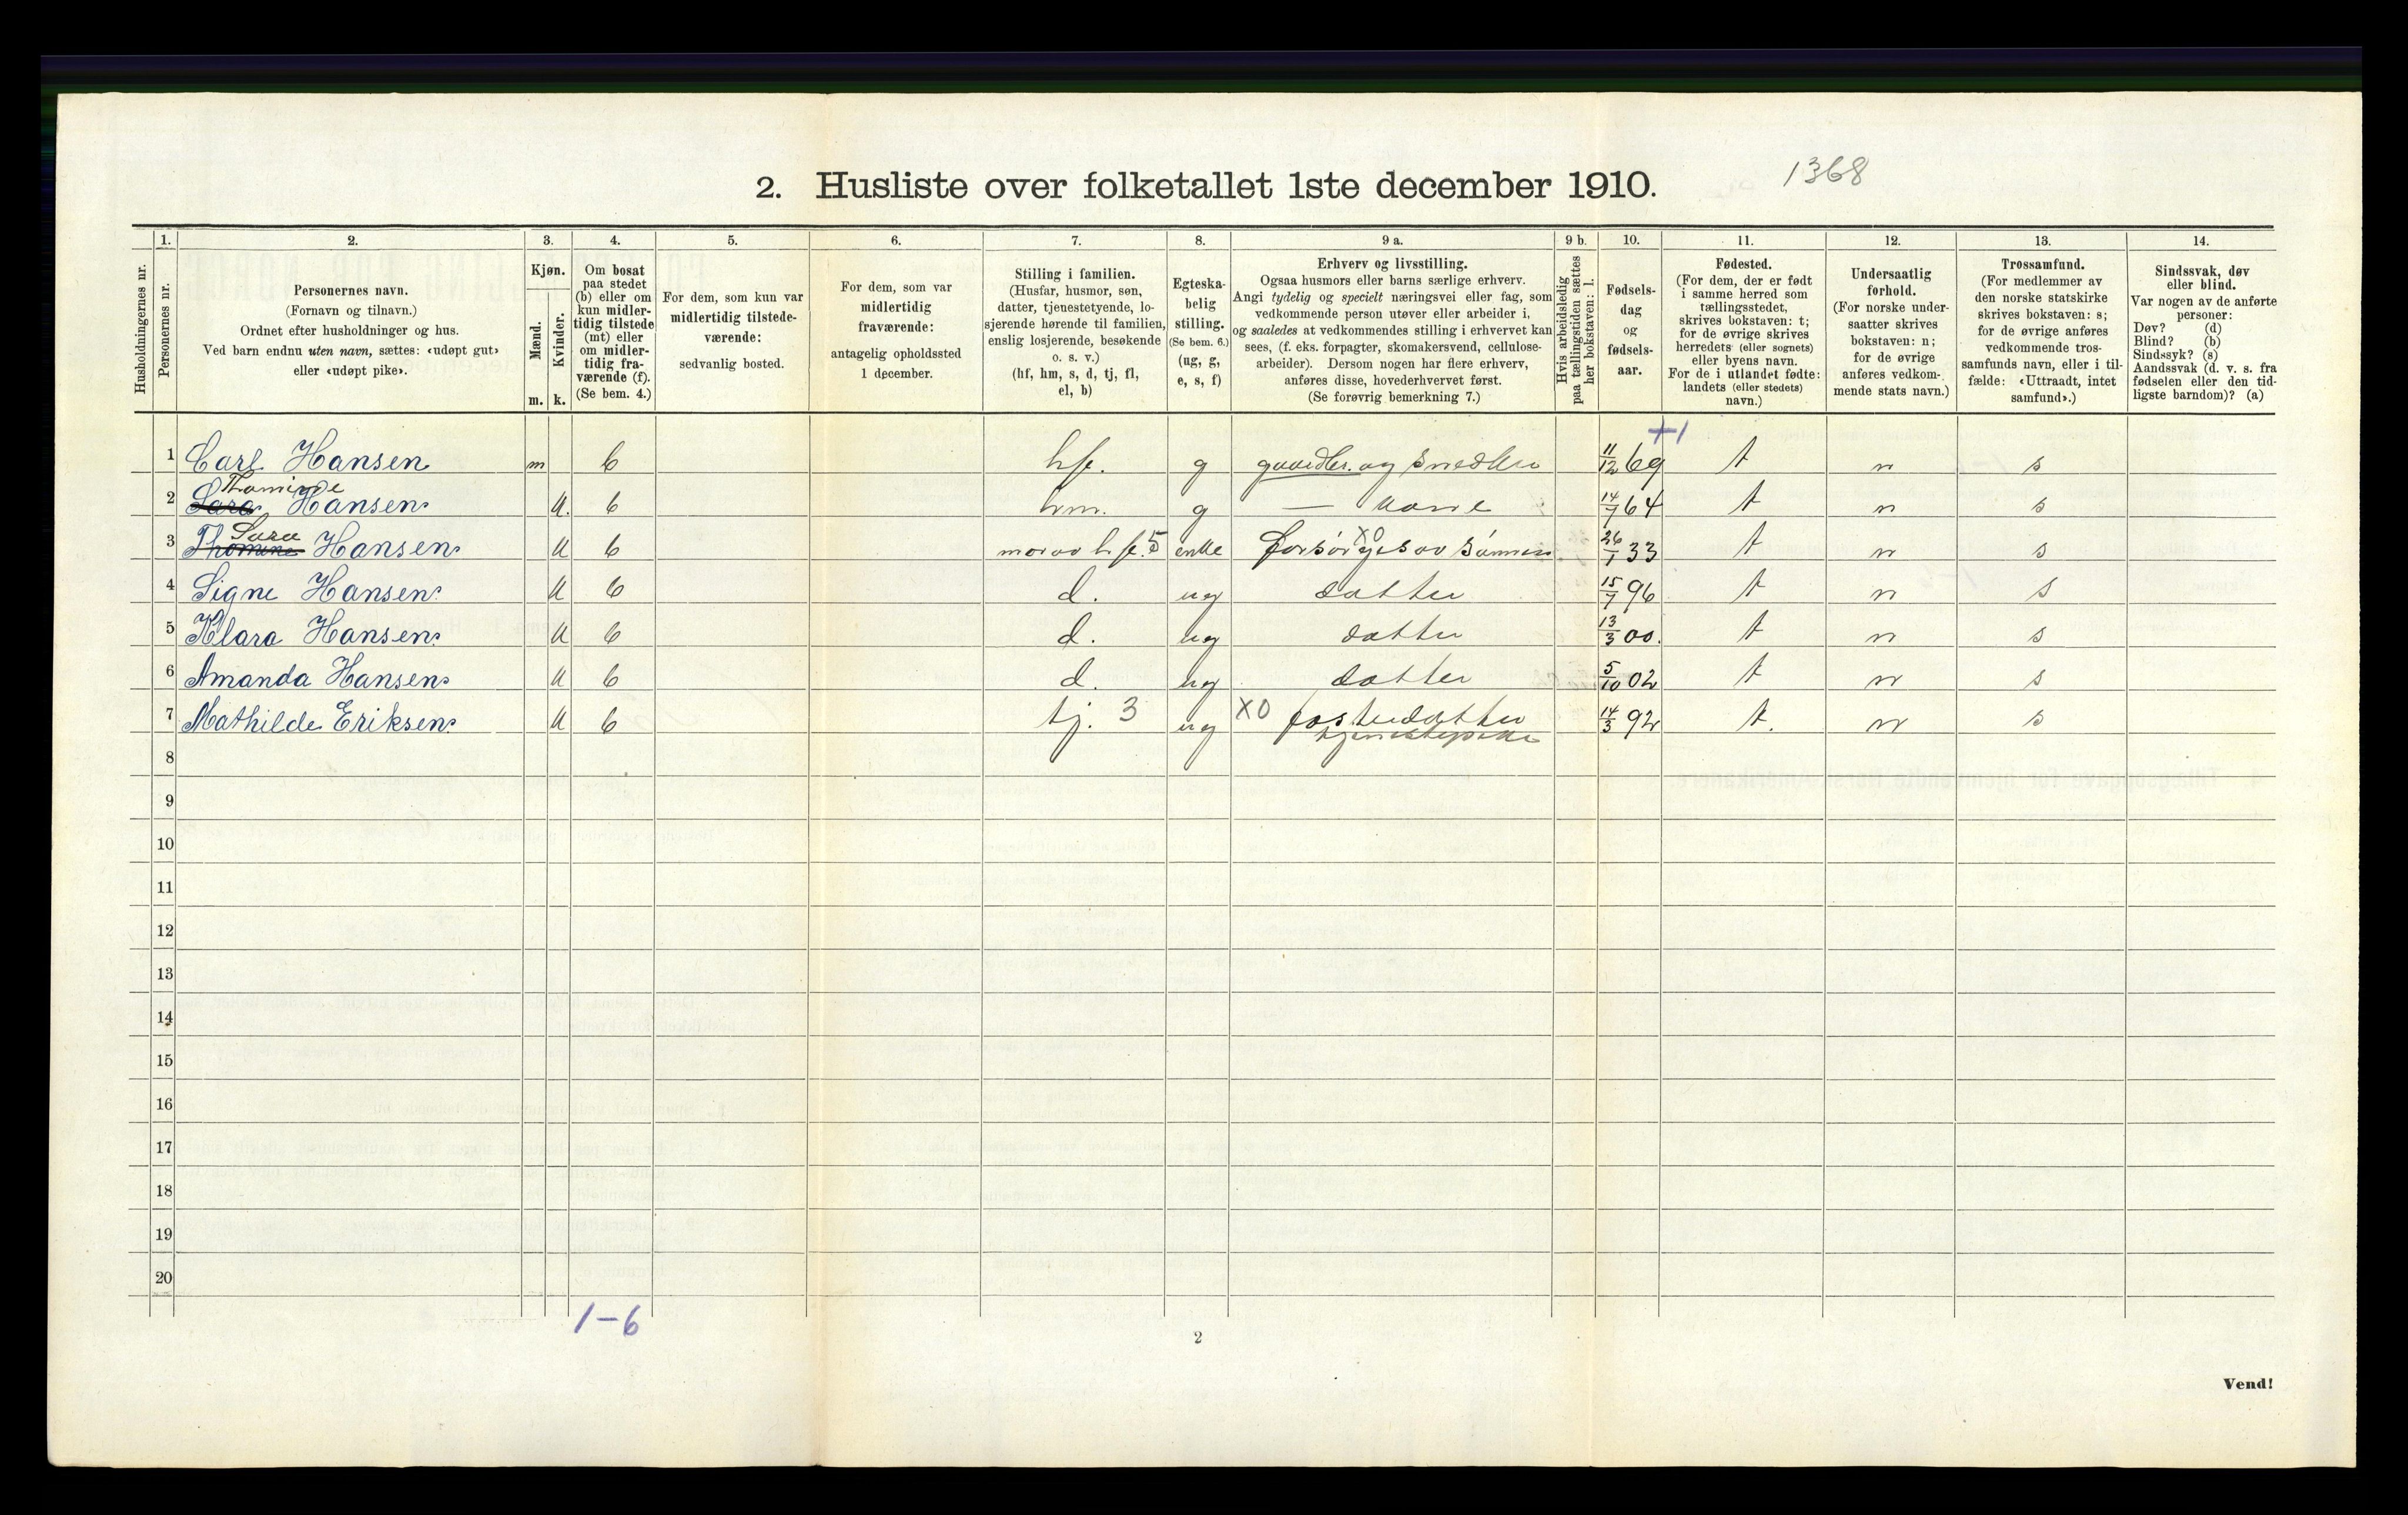 2. Husliste over folketallet 1ste december 1910.
1368
1. 2. 3. 4. 5. 6. 7. 8. 9 a. 9 b. 10. 11. 12. 13. 14.
Husholdningernes nr.
Personernes nr.
Personernes navn.
(Fornavn og tilnavn.)
Ordnet efter husholdninger og hus.
Ved barn endnu uten navn, sættes: «udøpt gut»
eller «udøpt pike».
Kjøn.
Mænd.
Kvinder.
m. k.
Om bosat
paa stedet
(b) eller om
kun midler-
tidig tilstede
(mt) eller
om midler-
tidig fra-
værende (f).
(Se bem. 4.)
For dem, som kun var
midlertidig tilstede-
værende:
sedvanlig bosted.
For dem, som var
midlertidig
fraværende:
antagelig opholdssted
1 december.
Stilling i familien.
(Husfar, husmor, søn,
datter, tjenestetyende, lo-
sjerende hørende til familien,
enslig losjerende, besøkende
o. s. v.)
(hf, hm, s, d, tj, fl,
el, b)
Egteska-
belig
stilling.
(Se bem. 6.)
(ug, g,
e, s, f)
Erhverv og livsstilling.
Ogsaa husmors eller barns særlige erhverv.
Angi tydelig og specielt næringsvei eller fag, som
vedkommende person utøver eller arbeider i,
og saaledes at vedkommendes stilling i erhvervet kan
sees, (f. eks. forpagter, skomakersvend, cellulose-
arbeider). Dersom nogen har flere erhverv,
anføres disse, hovederhvervet først.
(Se forøvrig bemerkning 7.)
Hvis arbeidsledig
paa tællingstiden sættes
her bokstaven: l.
Fødsels-
dag
og
fødsels-
aar.
Fødested.
(For dem, der er født
i samme herred som
tællingsstedet,
skrives bokstaven: t;
for de øvrige skrives
herredets (eller sognets)
eller byens navn.
For de i utlandet fødte:
landets (eller stedets)
navn.)
Undersaatlig
forhold.
(For norske under-
saatter skrives
bokstaven: n;
for de øvrige
anføres vedkom-
mende stats navn.)
Trossamfund.
(For medlemmer av
den norske statskirke
skrives bokstaven: s;
for de øvrige anføres
vedkommende tros-
samfunds navn, eller i til-
fælde: «Uttraadt, intet
samfund».)
Sindssvak, døv
eller blind.
Var nogen av de anførte
personer:
Døv? (d)
Blind? (b)
Sindssyk? (s)
Aandssvak (d. v. s. fra
fødselen eller den tid-
ligste barndom)? (a)
+1
1 Carl Hansen m b hf. g gaardbr. og Snedker 11/12 69 t n s
Thomine
2 Sara Hansen k. b hm. g — kone 14/7 64 t n s
Sara
3 Thomine Hansen k b mor av hf. 5 enke forsørges av sønnen X0 26/1 33 t n s
4 Signe Hansen k b d. ug datter 15/7 96 t n s
5 Klara Hansen k b d. ug datter 13/3 00. t n s
6 Amanda Hansen k b d. ug datter 5/10 02 t n s
7 Mathilde Eriksen k b tj. 3 ug X0 fosterdatter 14/3 92 t. n s
tjenestepike
8
9
10
11
12
13
14
15
16
17
18
19
20
1-6
2
Vend!